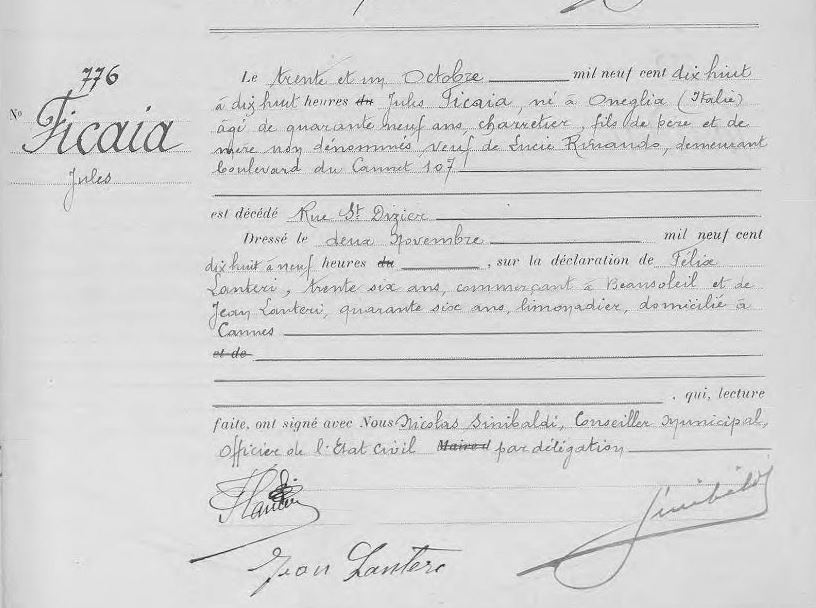 776
Nº Ficaia
Jules
Le trente et un Octobre mil neuf cent dix huit
à dix huit heures du Jules Ficaia, né à Oneglia (Italie)
âgé de quarante neuf ans charretier, fils de père et de
mère non dénommés veuf de Lucie Rinando, demeurant
boulevard du Cannet 107
est décédé Rue St Dizier
Dressé le deux Novembre mil neuf cent
dix huit à neuf heures du , sur la déclaration de Félix
Lanteri, trente six ans, commerçant à Beausoleil et de
Jean Lanteri, quarante six ans, limonadier, domicilié à
Cannes
et de
, qui, lecture
faite, ont signé avec Nous Nicolas Sinibaldi, Conseiller Municipal,
Officier de l'Etat Civil Maire d par délégation
Sinibaldi
Jean Lantere